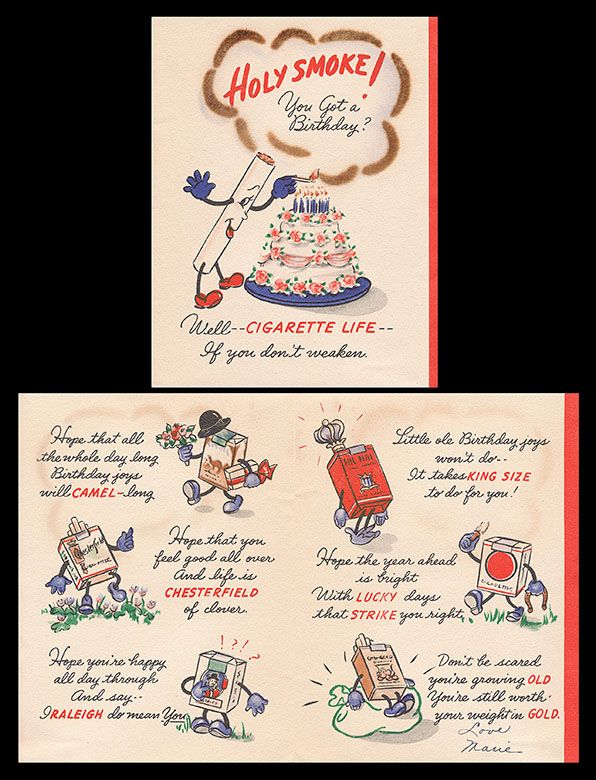 HOLY SMOKE!
You Got a
Birthday?
Well--CIGARETTE LIFE--
If you don't weaken.
Hope that all
the whole day long
Birthday joys
will CAMEL-long
Hope that you
feel good all over
And life is
CHESTERFIELD
of clover.
Chesterfield
Hope you're happy
all day through
And say--
I RALEIGH do mean You
???
Little ole Birthday joys
won't do--
It takes KING SIZE
to do for you!
Hope the year ahead
is bright
With LUCKY days
that STRIKE you right,
Don't be scared
you're growing OLD
You're still worth
your weight in GOLD.
Love
Marie